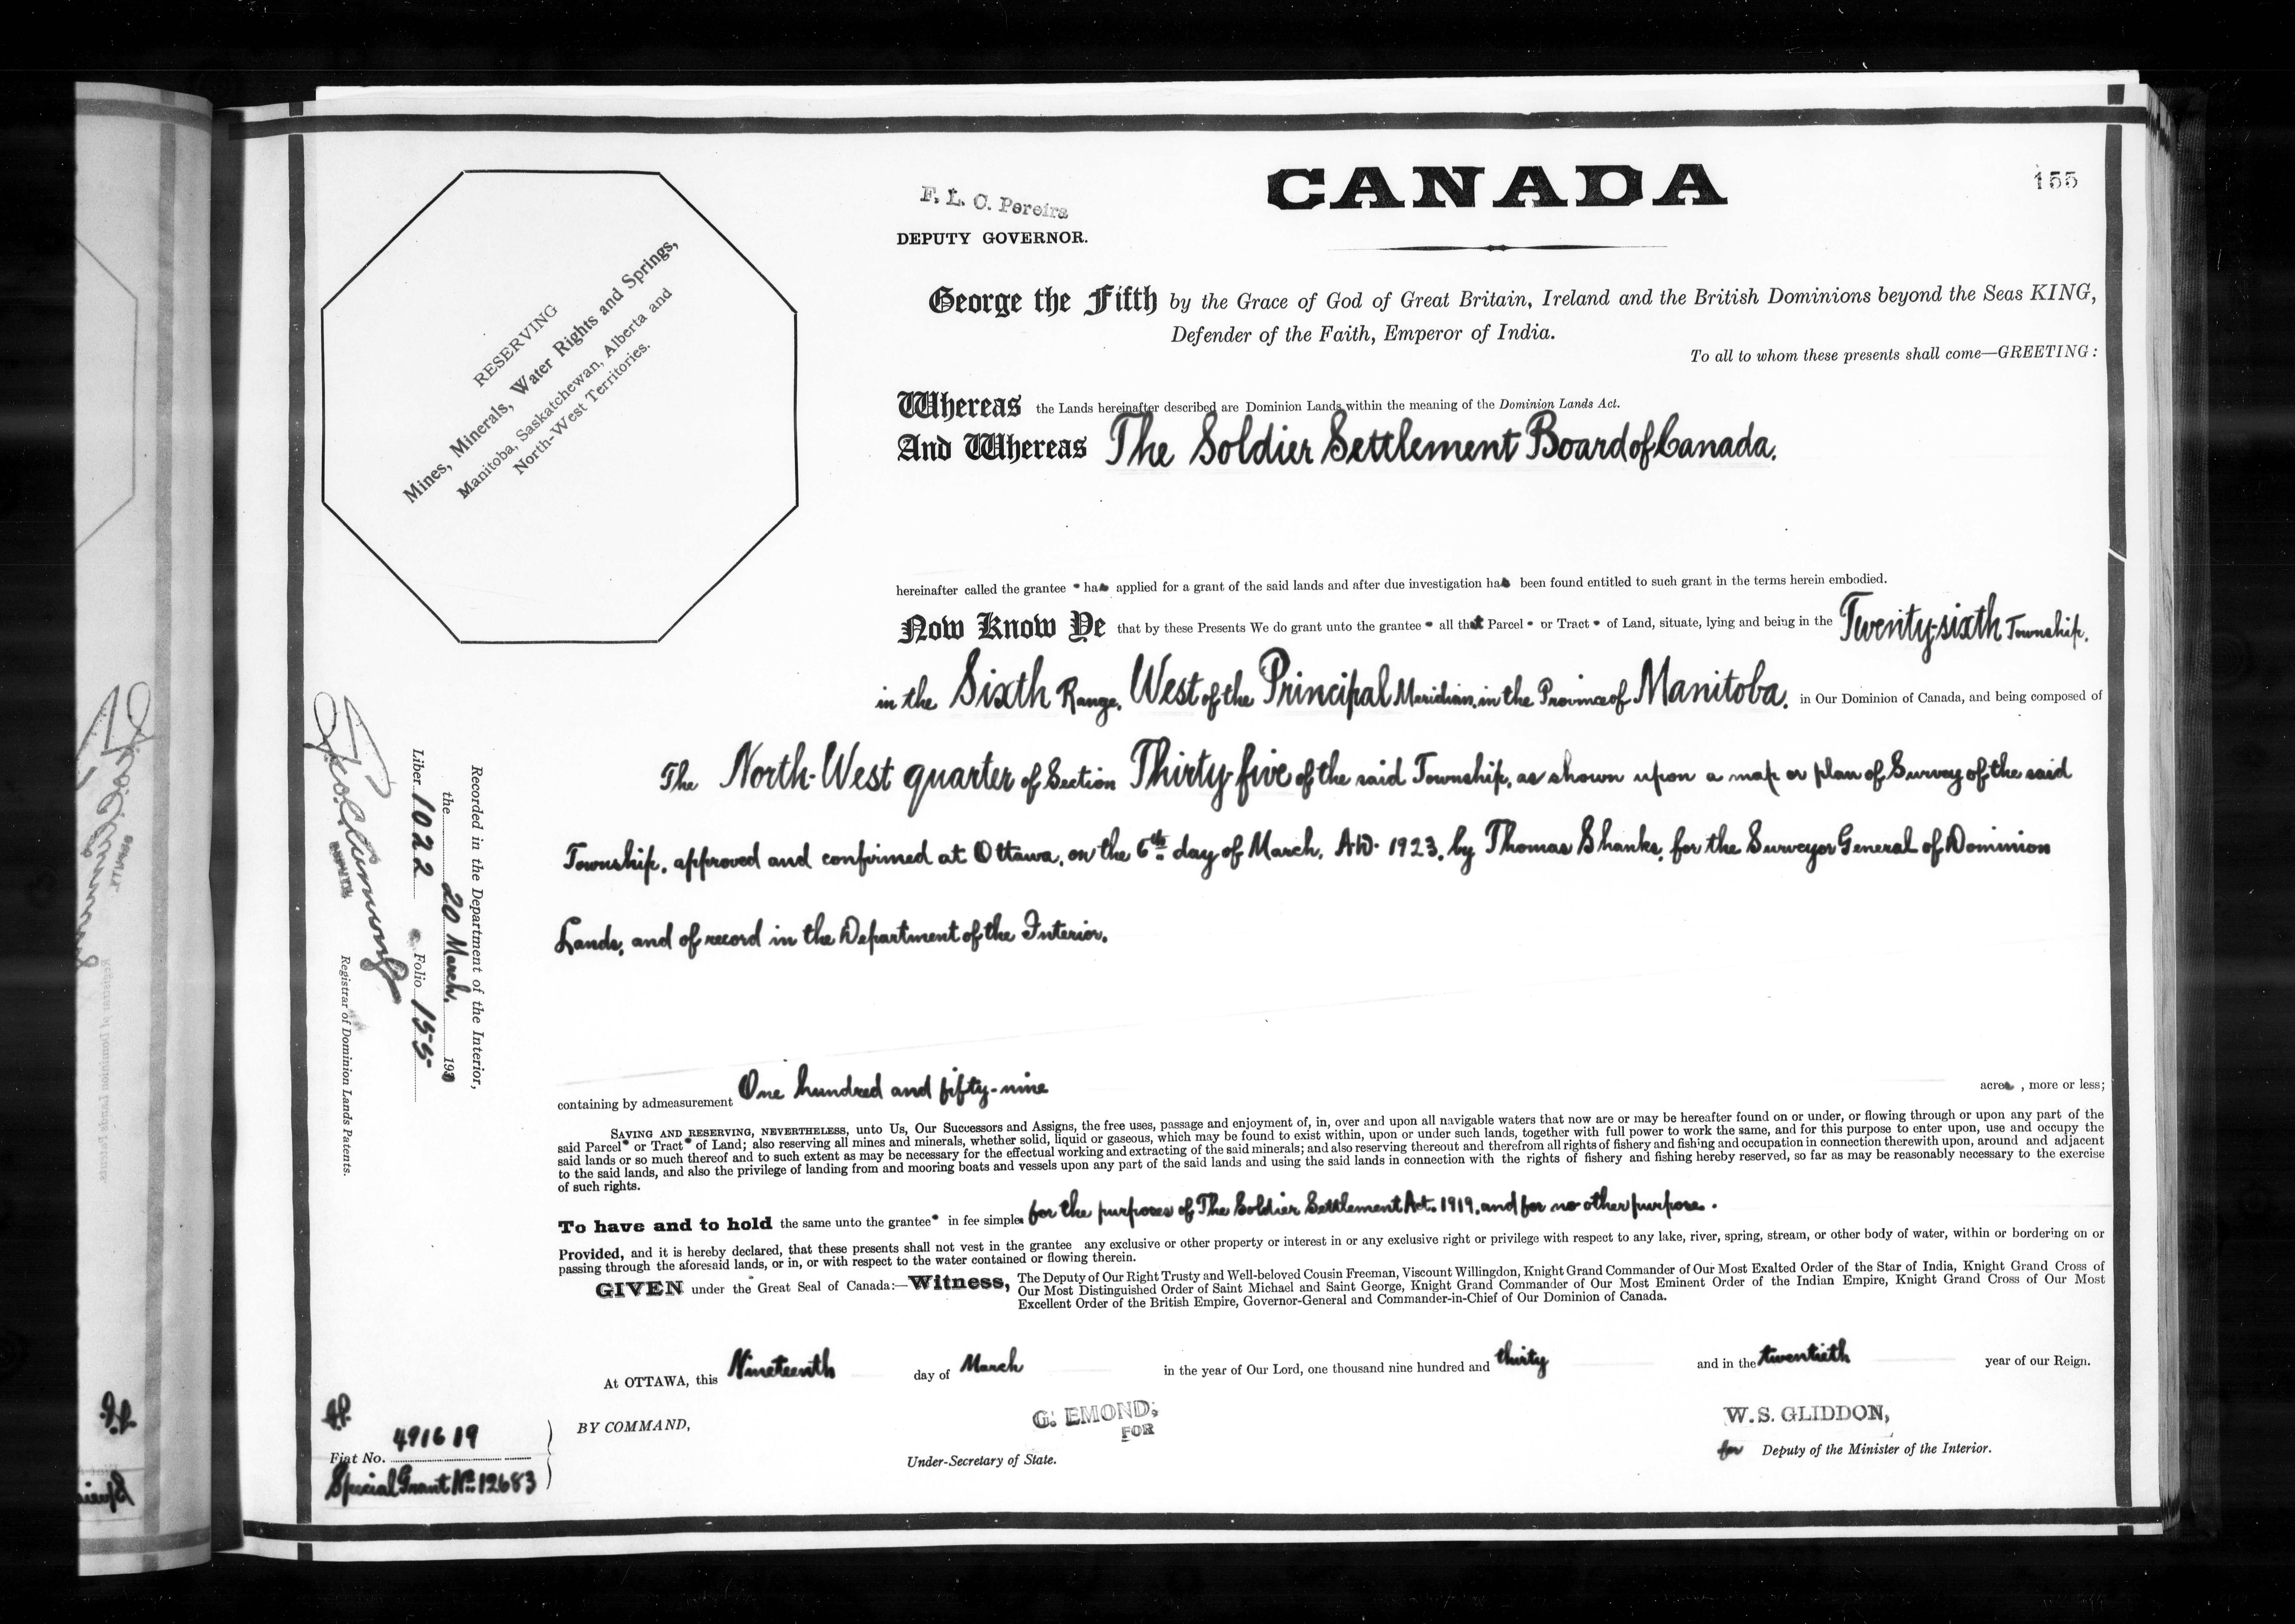 155
CANADA
F. L. C. Pereira
DEPUTY GOVERNOR.
RESERVING
Mines, Minerals, Water Rights and Springs,
Manitoba, Saskatchewan, Alberta and
North-West Territories.
George the Fifth by the Grace of God of Great Britain, Ireland and the British Dominions beyond the Seas KING,
Defender of the Faith, Emperor of India.
To all to whom these presents shall come—GREETING:
Whereas the Lands hereinafter described are Dominion Lands within the meaning of the Dominion Lands Act.
And Whereas The Soldier Settlement Board of Canada.
hereinafter called the grantee has applied for a grant of the said lands and after due investigation has been found entitled to such grant in the terms herein embodied.
Now Know Ye that by these Presents We do grant unto the grantee all that Parcel or Tract of Land, situate, lying and being in the Twenty-sixth Township,
in the Sixth Range, West of the Principal Meridian, in the Province of Manitoba, in Our Dominion of Canada, and being composed of
The North-West quarter of Section Thirty-five of the said Township, as shown upon a map or plan of Survey of the said
Township, approved and confirmed at Ottawa, on the 6th day of March, A.D. 1923, by Thomas Shanks, for the Surveyor General of Dominion
Lands, and of record in the Department of the Interior.
containing by admeasurement One hundred and fifty-nine acres, more or less;
SAVING AND RESERVING, NEVERTHELESS, unto Us, Our Successors and Assigns, the free uses, passage and enjoyment of, in, over and upon all navigable waters that now are or may be hereafter found on or under, or flowing through or upon any part of the
said Parcel or Tract of Land; also reserving all mines and minerals, whether solid, liquid or gaseous, which may be found to exist within, upon or under such lands, together with full power to work the same, and for this purpose to enter upon, use and occupy the
said lands or so much thereof and to such extent as may be necessary for the effectual working and extracting of the said minerals; and also reserving thereout and therefrom all rights of fishery and fishing and occupation in connection therewith upon, around and adjacent
to the said lands, and also the privilege of landing from and mooring boats and vessels upon any part of the said lands and using the said lands in connection with the rights of fishery and fishing hereby reserved, so far as may be reasonably necessary to the exercise
of such rights.
To have and to hold the same unto the grantee in fee simple for the purposes of The Soldier Settlement Act. 1919, and for no other purpose.
Provided, and it is hereby declared, that these presents shall not vest in the grantee any exclusive or other property or interest in or any exclusive right or privilege with respect to any lake, river, spring, stream, or other body of water, within or bordering on or
passing through the aforesaid lands, or in, or with respect to the water contained or flowing therein.
GIVEN under the Great Seal of Canada:—Witness, The Deputy of Our Right Trusty and Well-beloved Cousin Freeman, Viscount Willingdon, Knight Grand Commander of Our Most Exalted Order of the Star of India, Knight Grand Cross of
Our Most Distinguished Order of Saint Michael and Saint George, Knight Grand Commander of Our Most Eminent Order of the Indian Empire, Knight Grand Cross of Our Most
Excellent Order of the British Empire, Governor-General and Commander-in-Chief of Our Dominion of Canada.
At OTTAWA, this Nineteenth day of March in the year of Our Lord, one thousand nine hundred and thirty and in the twentieth year of our Reign.
BY COMMAND,
G. EMOND,
FOR
Under-Secretary of State.
W. S. GLIDDON,
for Deputy of the Minister of the Interior.
Fiat No. 491619
Special Grant No. 12683
Recorded in the Department of the Interior,
the 20 March. 1930
Liber 1022 Folio 155
DEPUTY
Registrar of Dominion Lands Patents.